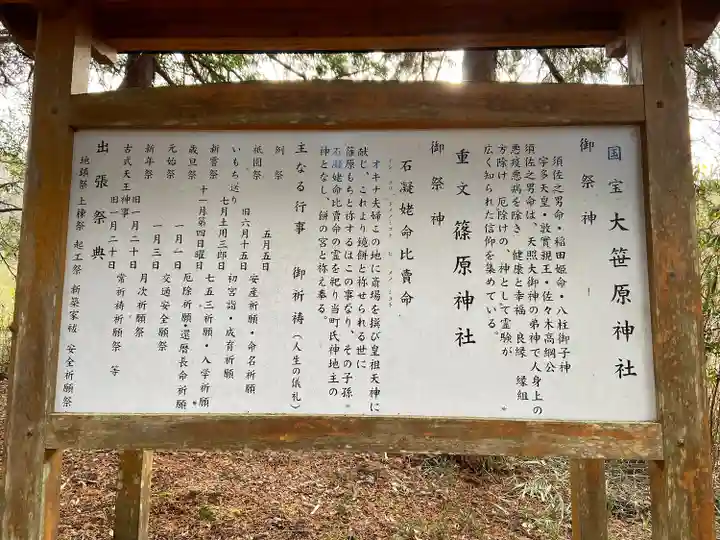 国宝 大笹原神社
御祭神
須佐之男命・稲田姫命・八柱御子神
宇多天皇・敦實親王・佐々木高綱公
須佐之男命は、天照大御神の弟神で人身上の
悪疫悪病を除き、健康と幸福、良縁、縁組
方除け、厄除けの、神として霊験が
広く知られた信仰を集めている。
重文 篠原神社
御祭神
石凝姥命比賣命
オキナ夫婦この地に斎場を撰び皇祖天神に
献じ、これより鏡餅と祢せられる世に
篠原もちと祢するはこの事なり、その子孫
石凝姥命比賣命の霊を祀り当町氏神地主の
神となし、餅の宮と祢え奉る。
主なる行事 御祈祷(人生の儀礼)
例祭 五月五日 安産祈願・命名祈願
祇園祭 旧六月十五日 初宮詣・成育祈願
いもち送り 七月土用三郎日 七五三祈願・入学祈願
新嘗祭 十一月第四日曜日 厄除祈願・還暦長命祈願
歳旦祭 一月一日 交通安全願祭
元始祭 一月三日 月次祈願祭
新年祭 旧一月二十日 常祈祷祈願祭 等
古式天王神事 旧一月二十日
出張祭典
地鎮祭 上棟祭 起工祭 新築家祓 安全祈願祭